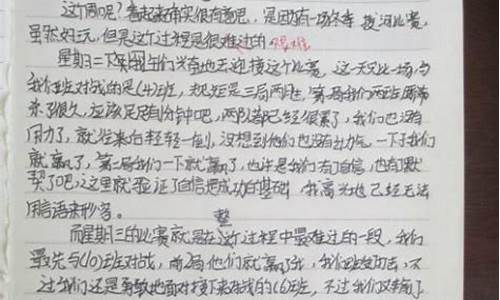 这个周呢?看起来确实很有意吧,是因为有一场冬季拔河比赛,
虽然好玩,但是这个过程是很难过的 艰难
星期二下午同学们兴奋地去迎接这个比赛,这一天只比一场,与
我们班对战的是(4)班,规矩是三局两胜,第一局我们两班
来了很久,应该足足有1分钟吧,两队都已经很累了,我们也没有
用力了,就往来向轻轻一
就赢了,第二局我们一下就赢了,也许是我们有了自信,也有了默
契了吧,这里就验证了自信把成功的基础,我高兴地已经无法
用言语来形容。
整
而星期三的比赛就是在这个过程中最难过的一段,我们
最先与(10)班对战,前2局他们就赢了我,我们
过我们还是勇敢地面对接下来对战的(6)班,不过我们又输了